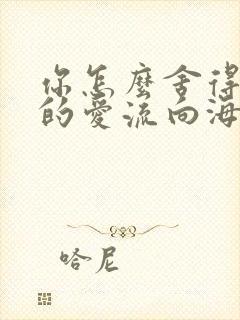 你怎麼舍得
的愛流向海
哈尼